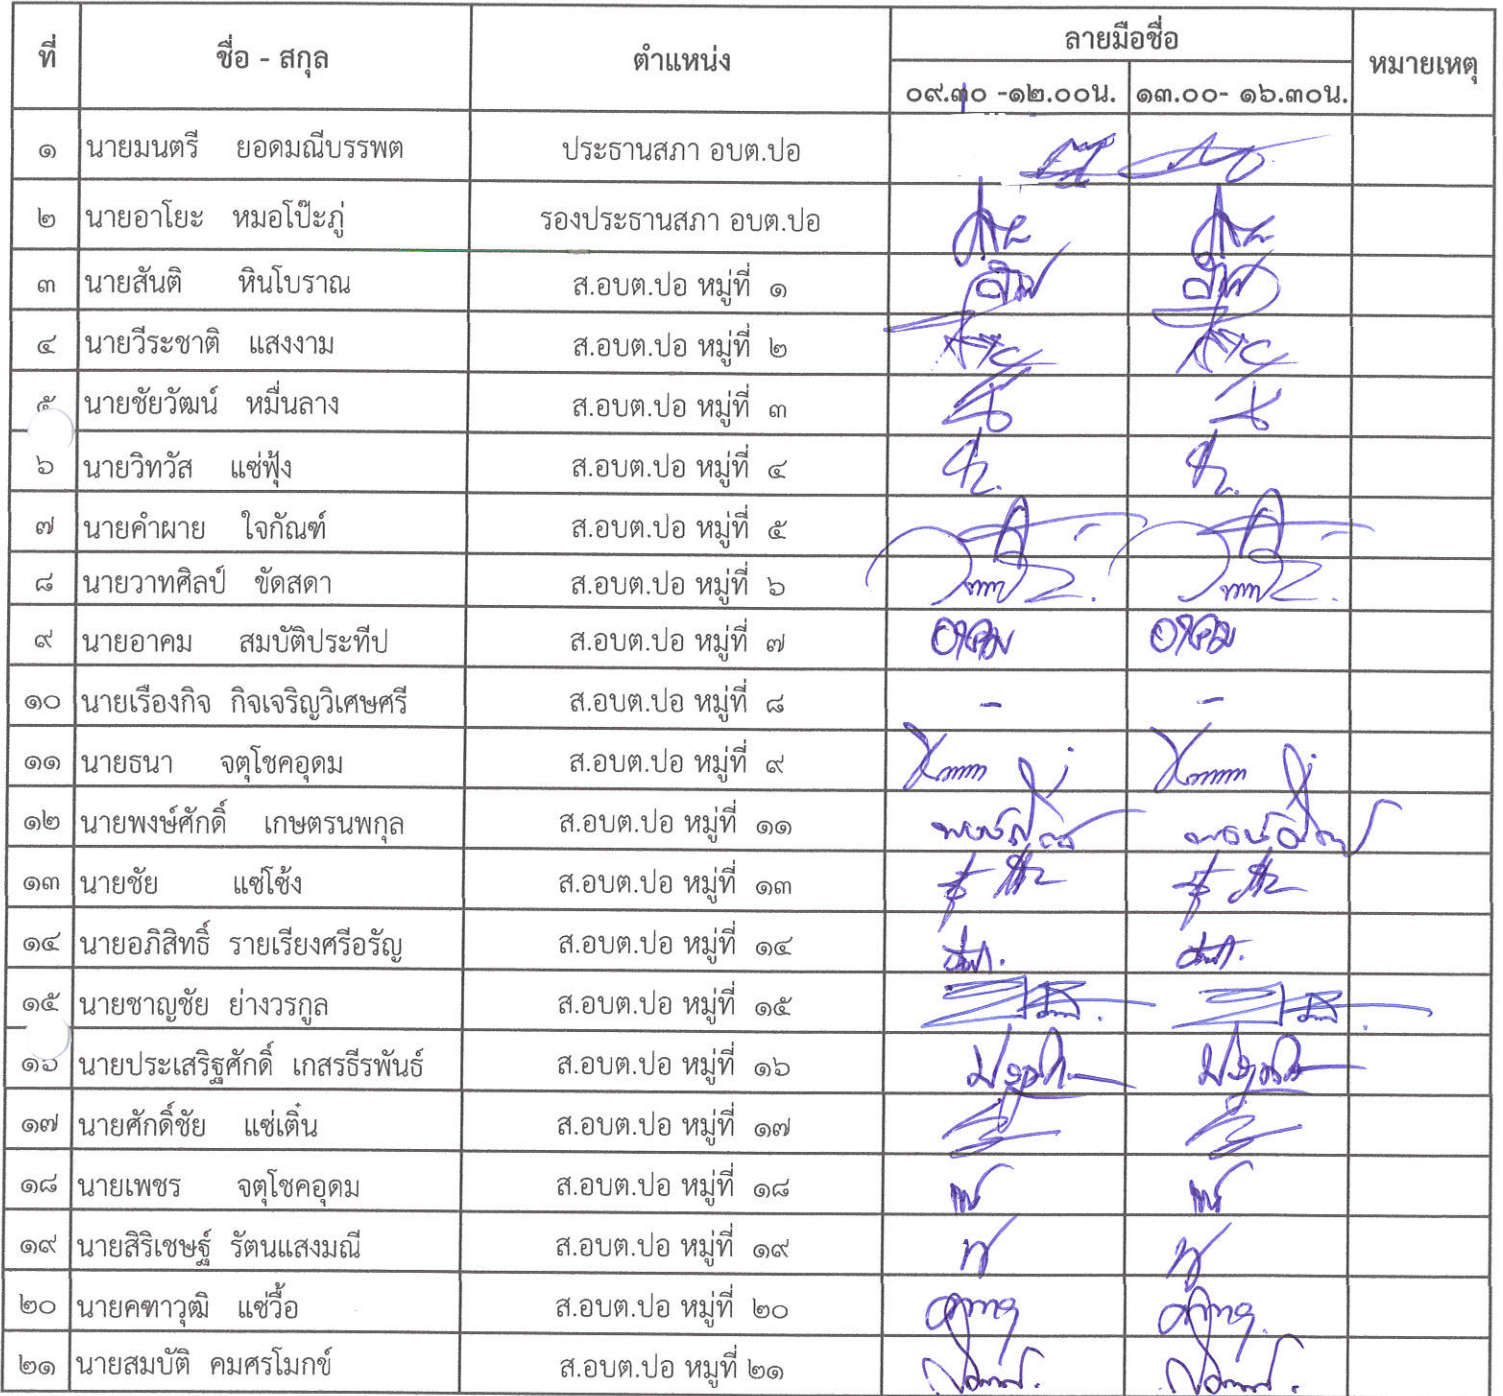 ที่ ชื่อ - สกุล ตำแหน่ง ลายมือชื่อ หมายเหตุ
๐๙.๓๐ -๑๒.๐๐น. ๑๓.๐๐- ๑๖.๓๐น.
๑ นายมนตรี ยอดมณีบรรพต ประธานสภา อบต.ปอ
๒ นายอาโยะ หมอโป๊ะภู่ รองประธานสภา อบต.ปอ
๓ นายสันติ หินโบราณ ส.อบต.ปอ หมู่ที่ ๑
๔ นายวีระชาติ แสงงาม ส.อบต.ปอ หมู่ที่ ๒
๕ นายชัยวัฒน์ หมื่นลาง ส.อบต.ปอ หมู่ที่ ๓
๖ นายวิทวัส แซ่ฟุ้ง ส.อบต.ปอ หมู่ที่ ๔
๗ นายคำผาย ใจกัณฑ์ ส.อบต.ปอ หมู่ที่ ๕
๘ นายวาทศิลป์ ขัดสดา ส.อบต.ปอ หมู่ที่ ๖
๙ นายอาคม สมบัติประทีป ส.อบต.ปอ หมู่ที่ ๗ อาคม อาคม
๑๐ นายเรืองกิจ กิจเจริญวิเศษศรี ส.อบต.ปอ หมู่ที่ ๘ - -
๑๑ นายธนา จตุโชคอุดม ส.อบต.ปอ หมู่ที่ ๙
๑๒ นายพงษ์ศักดิ์ เกษตรนพกุล ส.อบต.ปอ หมู่ที่ ๑๑
๑๓ นายชัย แซ่โซ้ง ส.อบต.ปอ หมู่ที่ ๑๓
๑๔ นายอภิสิทธิ์ รายเรียงศรีอรัญ ส.อบต.ปอ หมู่ที่ ๑๔
๑๕ นายชาญชัย ย่างวรกูล ส.อบต.ปอ หมู่ที่ ๑๕
๑๖ นายประเสริฐศักดิ์ เกสรธีรพันธ์ ส.อบต.ปอ หมู่ที่ ๑๖
๑๗ นายศักดิ์ชัย แซ่เติ๋น ส.อบต.ปอ หมู่ที่ ๑๗
๑๘ นายเพชร จตุโชคอุดม ส.อบต.ปอ หมู่ที่ ๑๘
๑๙ นายสิริเชษฐ์ รัตนแสงมณี ส.อบต.ปอ หมู่ที่ ๑๙
๒๐ นายคฑาวุฒิ แซ่วื้อ ส.อบต.ปอ หมู่ที่ ๒๐
๒๑ นายสมบัติ คมศรโมกข์ ส.อบต.ปอ หมูที่ ๒๑